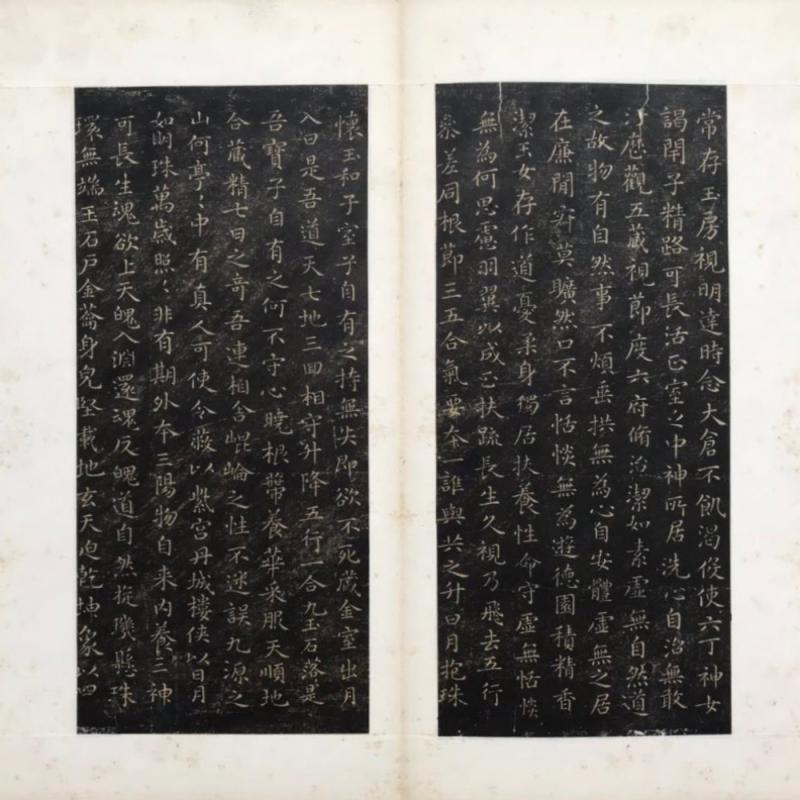 常存王房視明達時念大倉不飢渴役使六丁神女
謁閉子精路可長活正室之中神所居洗心自治無敢
汙歷觀五藏視節度六府脩治潔如素虛無自然道
之故物有自然事不煩垂拱無為心自安體虛無之居
在廉間寂莫曠然口不言恬惔無為遊德園積精香
潔玉女存作道憂柔身獨居扶養性命守虛無恬惔
無為何思慮羽翼以成正扶疏長生久視乃飛去五行
叅差同根節三五合氣要本一誰與共之升日月抱珠
懷玉和子室子自有之持無失即欲不死藏金室出月
入日是吾道天七地三回相守升降五行一合九玉石落是
吾寶子自有之何不守心曉根蔕養華采服天順地
合藏精七日之奇吾連相舍崐崘之性不迷誤九源之
山何亭〻中有真人可使令蔽以紫宮丹城樓俠以日月
如明珠萬歲照〻非有期外本三陽物自来内養三神
可長生魂欲上天魄入淵還魂反魄道自然㨔璣懸珠
環無端玉石戶金蘥身皃堅載地玄天迫乾坤象以四